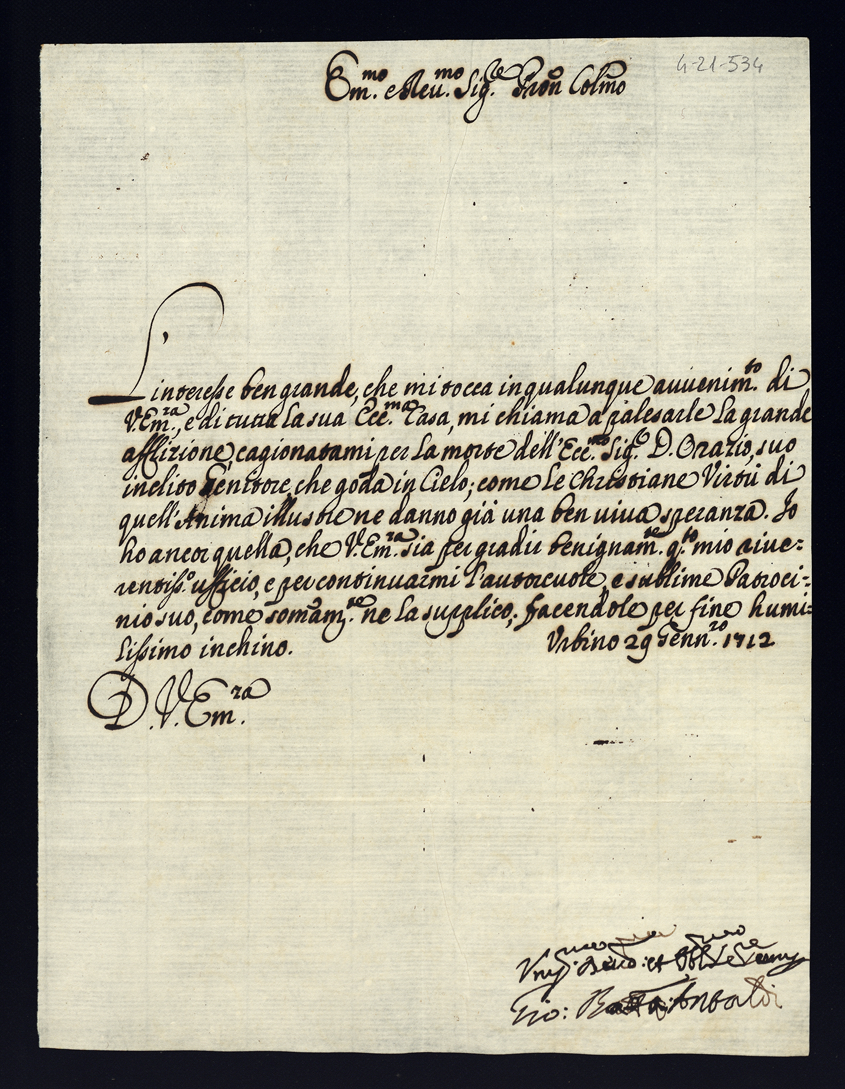 Em.mo e Reu.mo Sig.re Pron Colmo
4-21-534
L'interesse ben grande, che mi tocca in qualunque auuenim.to di
V. Em.ra, e di tutta la sua Ecc.ma Casa, mi chiama a palesarle la grande
afflizione cagionatami per la morte dell'Ecc.mo Sig.e D. Orazio, suo
inclito Genitore, che goda in Cielo; come le Christiane Virtù di
quell'Anima illustre ne danno già una ben viua speranza. Io
ho ancor quella, che V. Em.ra sia per gradir benignam.te q.to mio riue=
rentiss.o uffizio, e per continuarmi l'autoreuole, e sublime Patroci=
nio suo, come somam.te ne la supplico; facendole per fine humi=
lissimo inchino. Vrbino 29 Genn.ro 1712
D. V. Em.ra
et
Gio: